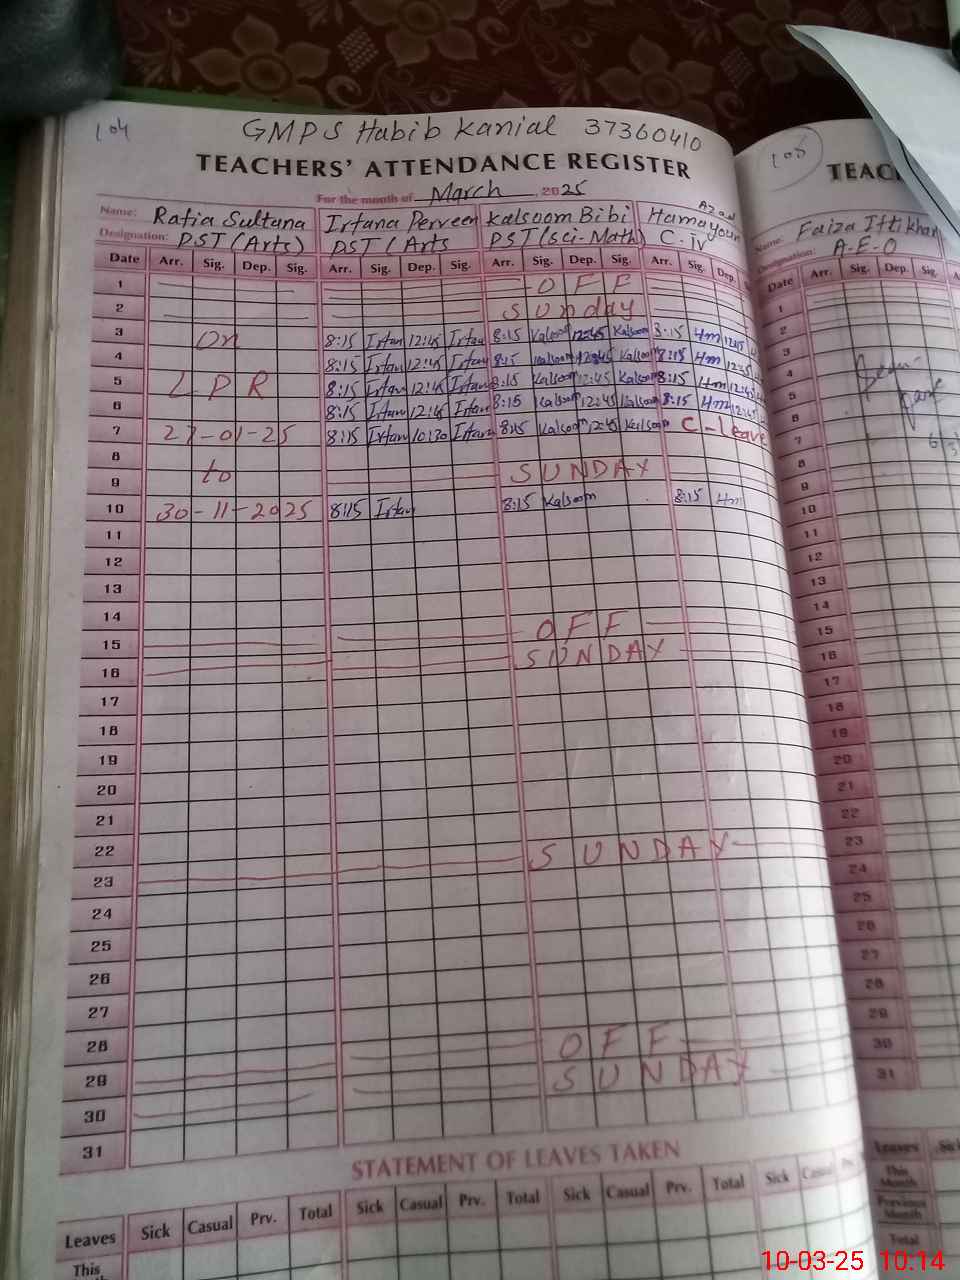 104
GMPS Habib Kanial 37360410
TEACHERS' ATTENDANCE REGISTER
For the month of March, 2025
Name: Rafia Sultana Irfana Perveen Kalsoom Bibi Hamayoun Azad
Designation: PST (Arts) PST (Arts PST (Sci-Math) C-iv
Date Arr. Sig. Dep. Sig. Arr. Sig. Dep. Sig. Arr. Sig. Dep. Sig. Arr. Sig. Dep.
1 OFF
2 Sunday
3 On 8:15 Irfan 12:45 Irfan 8:15 Kalsoom 12:45 Kalsoom 8:15 Hm 12:45
4 8:15 Irfan 12:45 Irfan 8:15 Kalsoom 12:45 Kalsoom 8:15 Hm 12:45
5 LPR 8:15 Irfan 12:45 Irfan 8:15 Kalsoom 12:45 Kalsoom 8:15 Hm 12:45
6 8:15 Irfan 12:45 Irfan 8:15 Kalsoom 12:45 Kalsoom 8:15 Hm 12:45
7 27-01-25 8:15 Irfan 10:30 Irfan 8:15 Kalsoom 12:45 Kalsoom C-leave
8 to
9 SUNDAY
10 30-11-2025 8:15 Irfan 8:15 Kalsoom 8:15 Hm
11
12
13
14
15 OFF
16 SUNDAY
17
18
19
20
21
22
23 SUNDAY
24
25
26
27
28
29 OFF
30 SUNDAY
31
STATEMENT OF LEAVES TAKEN
Leaves Sick Casual Prv. Total Sick Casual Prv. Total Sick Casual Prv. Total Sick
This
105
TEAC
Name: Faiza Iftikhar
Designation: A-E-O
Date Arr. Sig. Dep. Sig.
1
2
3
4
5
6
7
8
9
10
11
12
13
14
15
16
17
18
19
20
21
22
23
24
25
26
27
28
29
30
31
Leaves Sick
This Month
Previous Month
Total
10-03-25 10:14